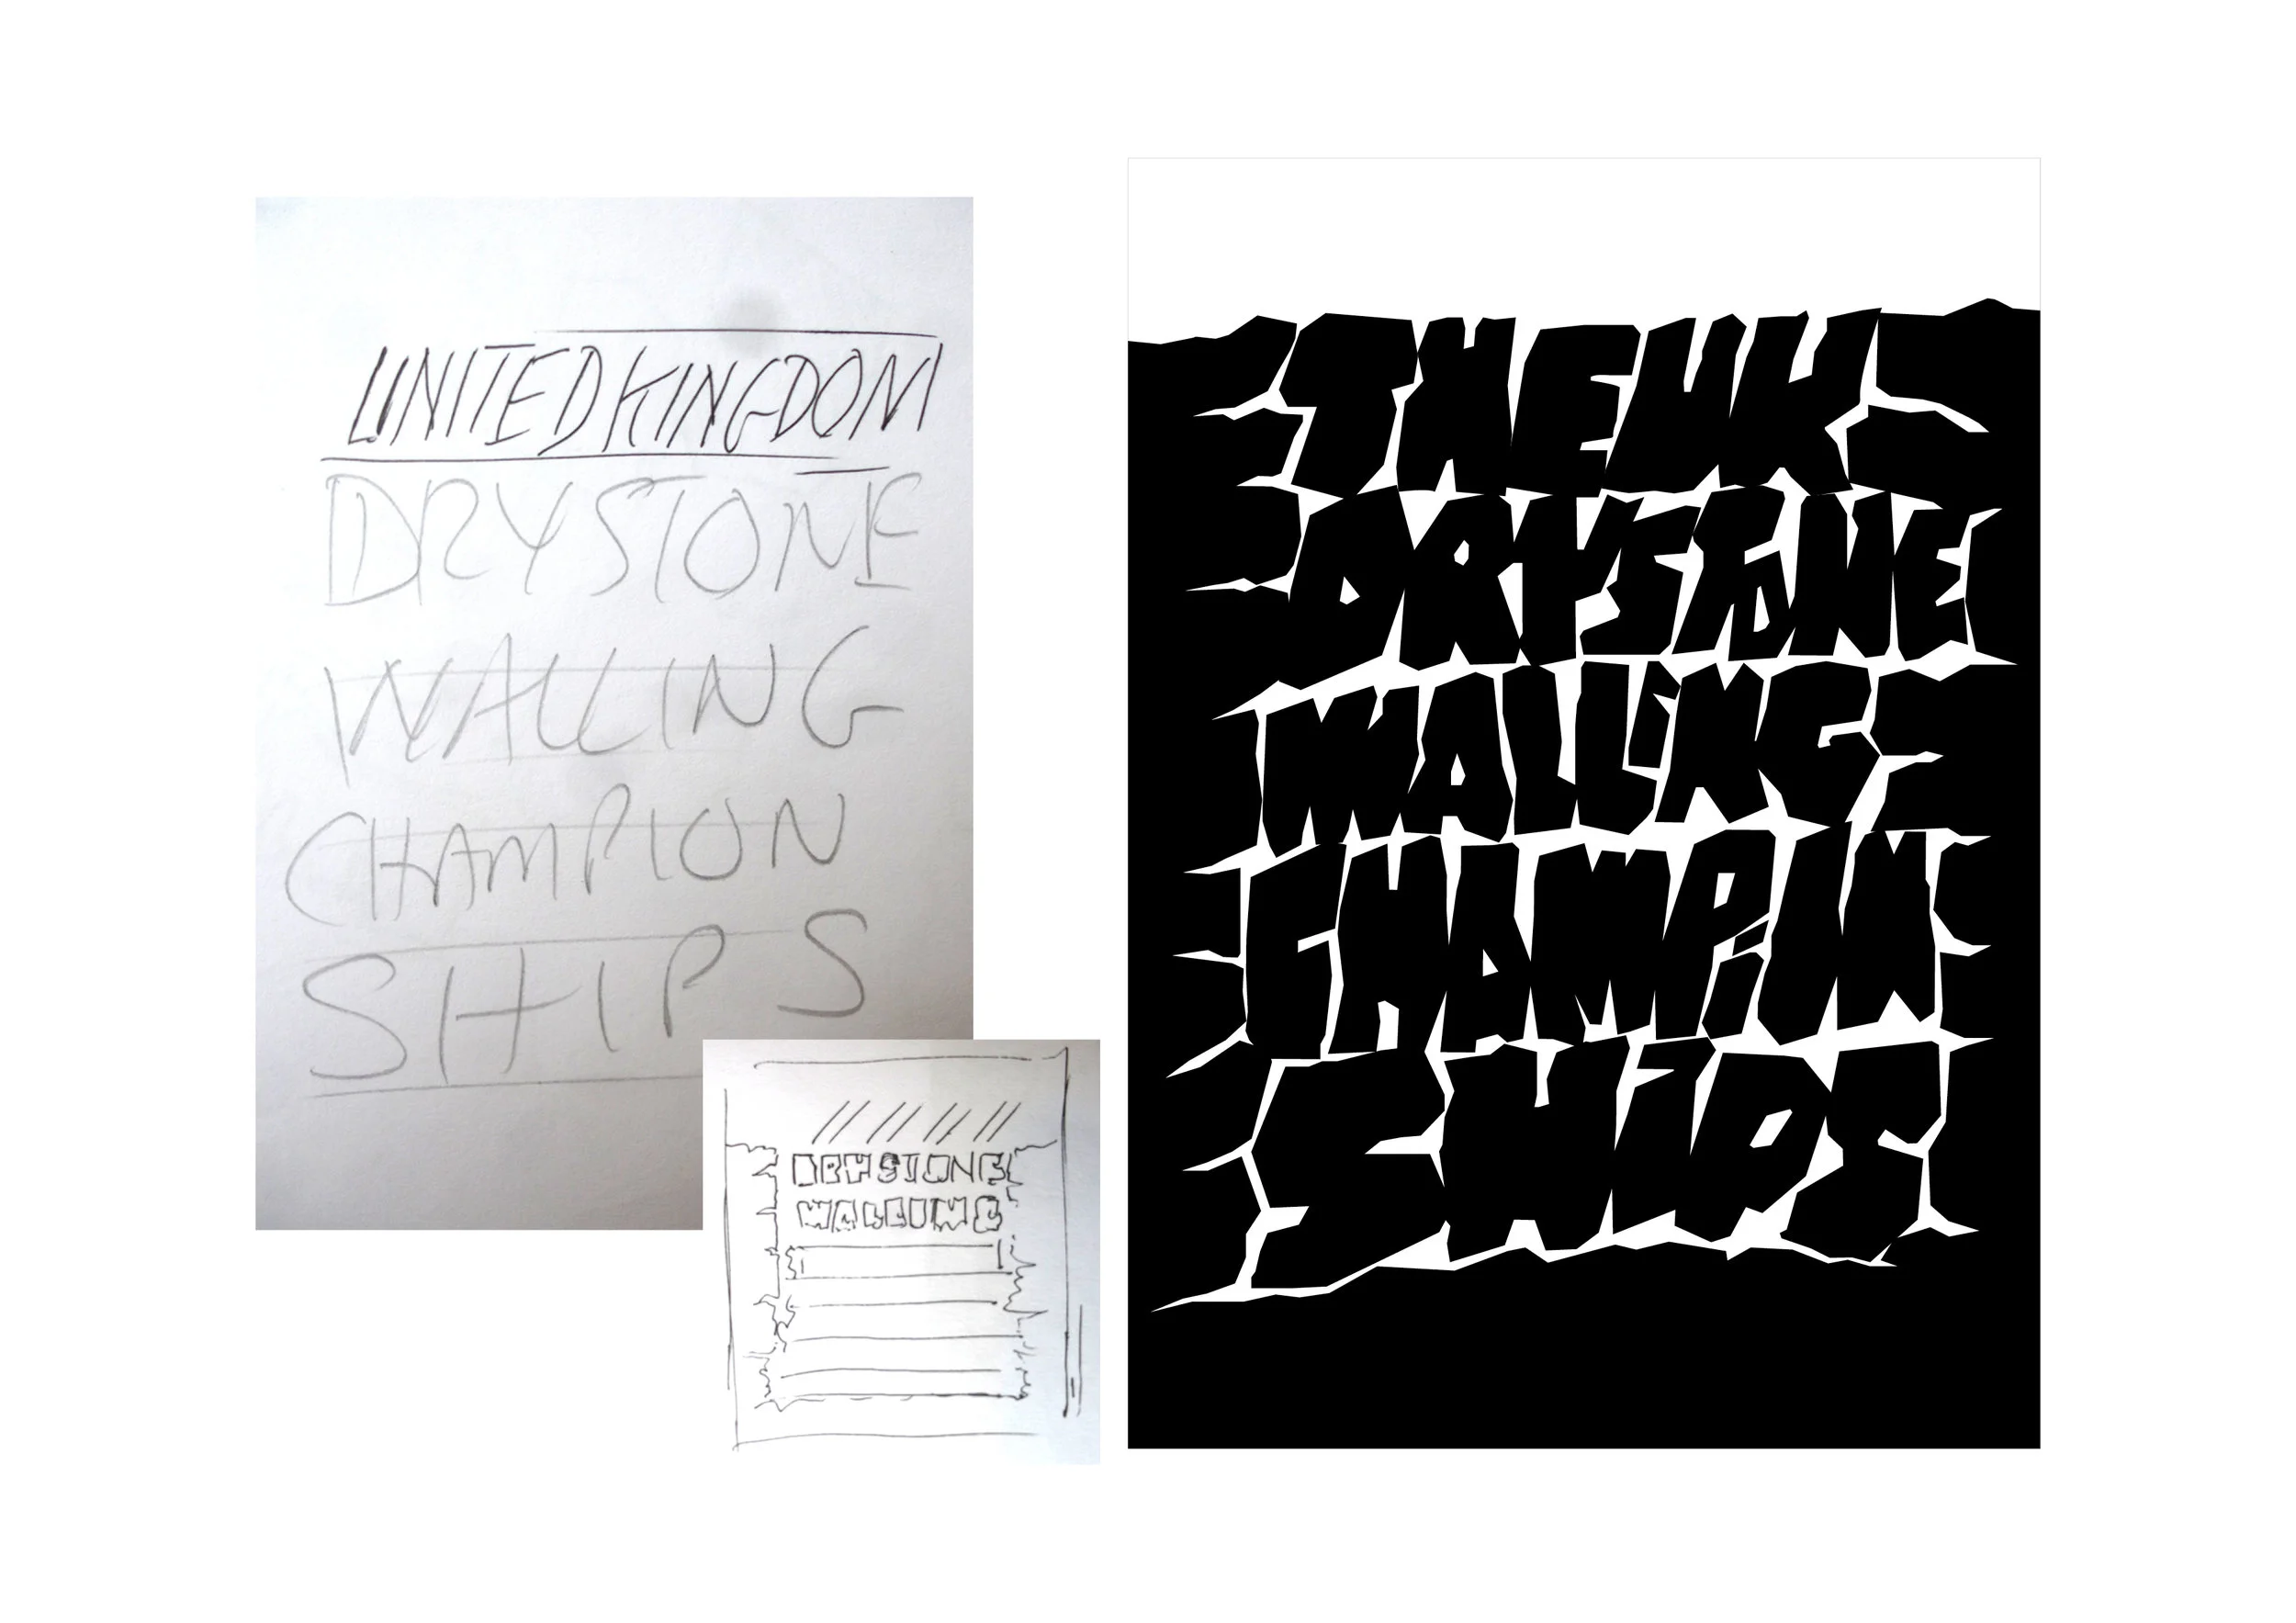 UNITED KINGDOM
DRYSTONE
WALLING
CHAMPION
SHIPS
DRYSTONE
WALLING
THE UK
DRYSTONE
WALLING
CHAMPION
SHIPS